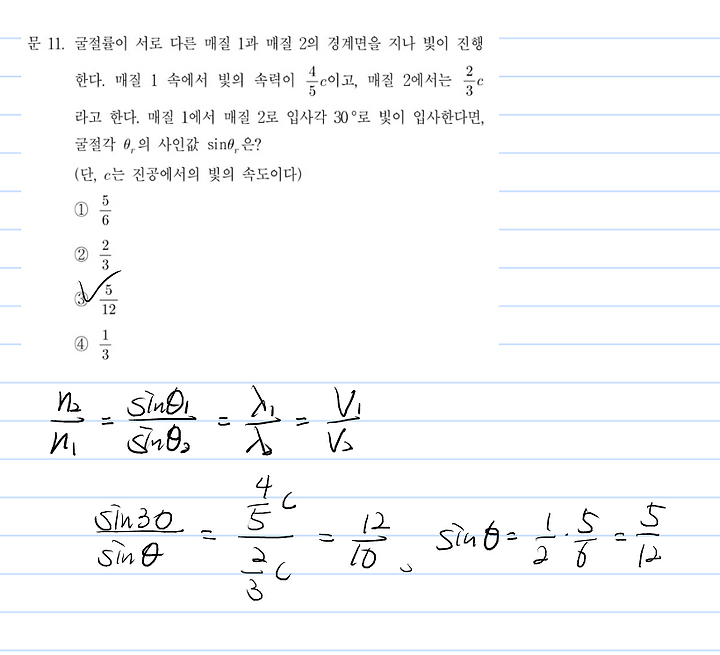 문 11. 굴절률이 서로 다른 매질 1과 매질 2의 경계면을 지나 빛이 진행
한다. 매질 1 속에서 빛의 속력이 4/5 c이고, 매질 2에서는 2/3 c
라고 한다. 매질 1에서 매질 2로 입사각 30°로 빛이 입사한다면,
굴절각 θᵣ의 사인값 sinθᵣ은?
(단, c는 진공에서의 빛의 속도이다)
① 5/6
② 2/3
③ 5/12
④ 1/3
n₂/n₁ = sinθ₁/sinθ₂ = λ₁/λ₂ = V₁/V₂
sin30/sinθ = (4/5 c)/(2/3 c) = 12/10, sinθ = 1/2 · 5/6 = 5/12